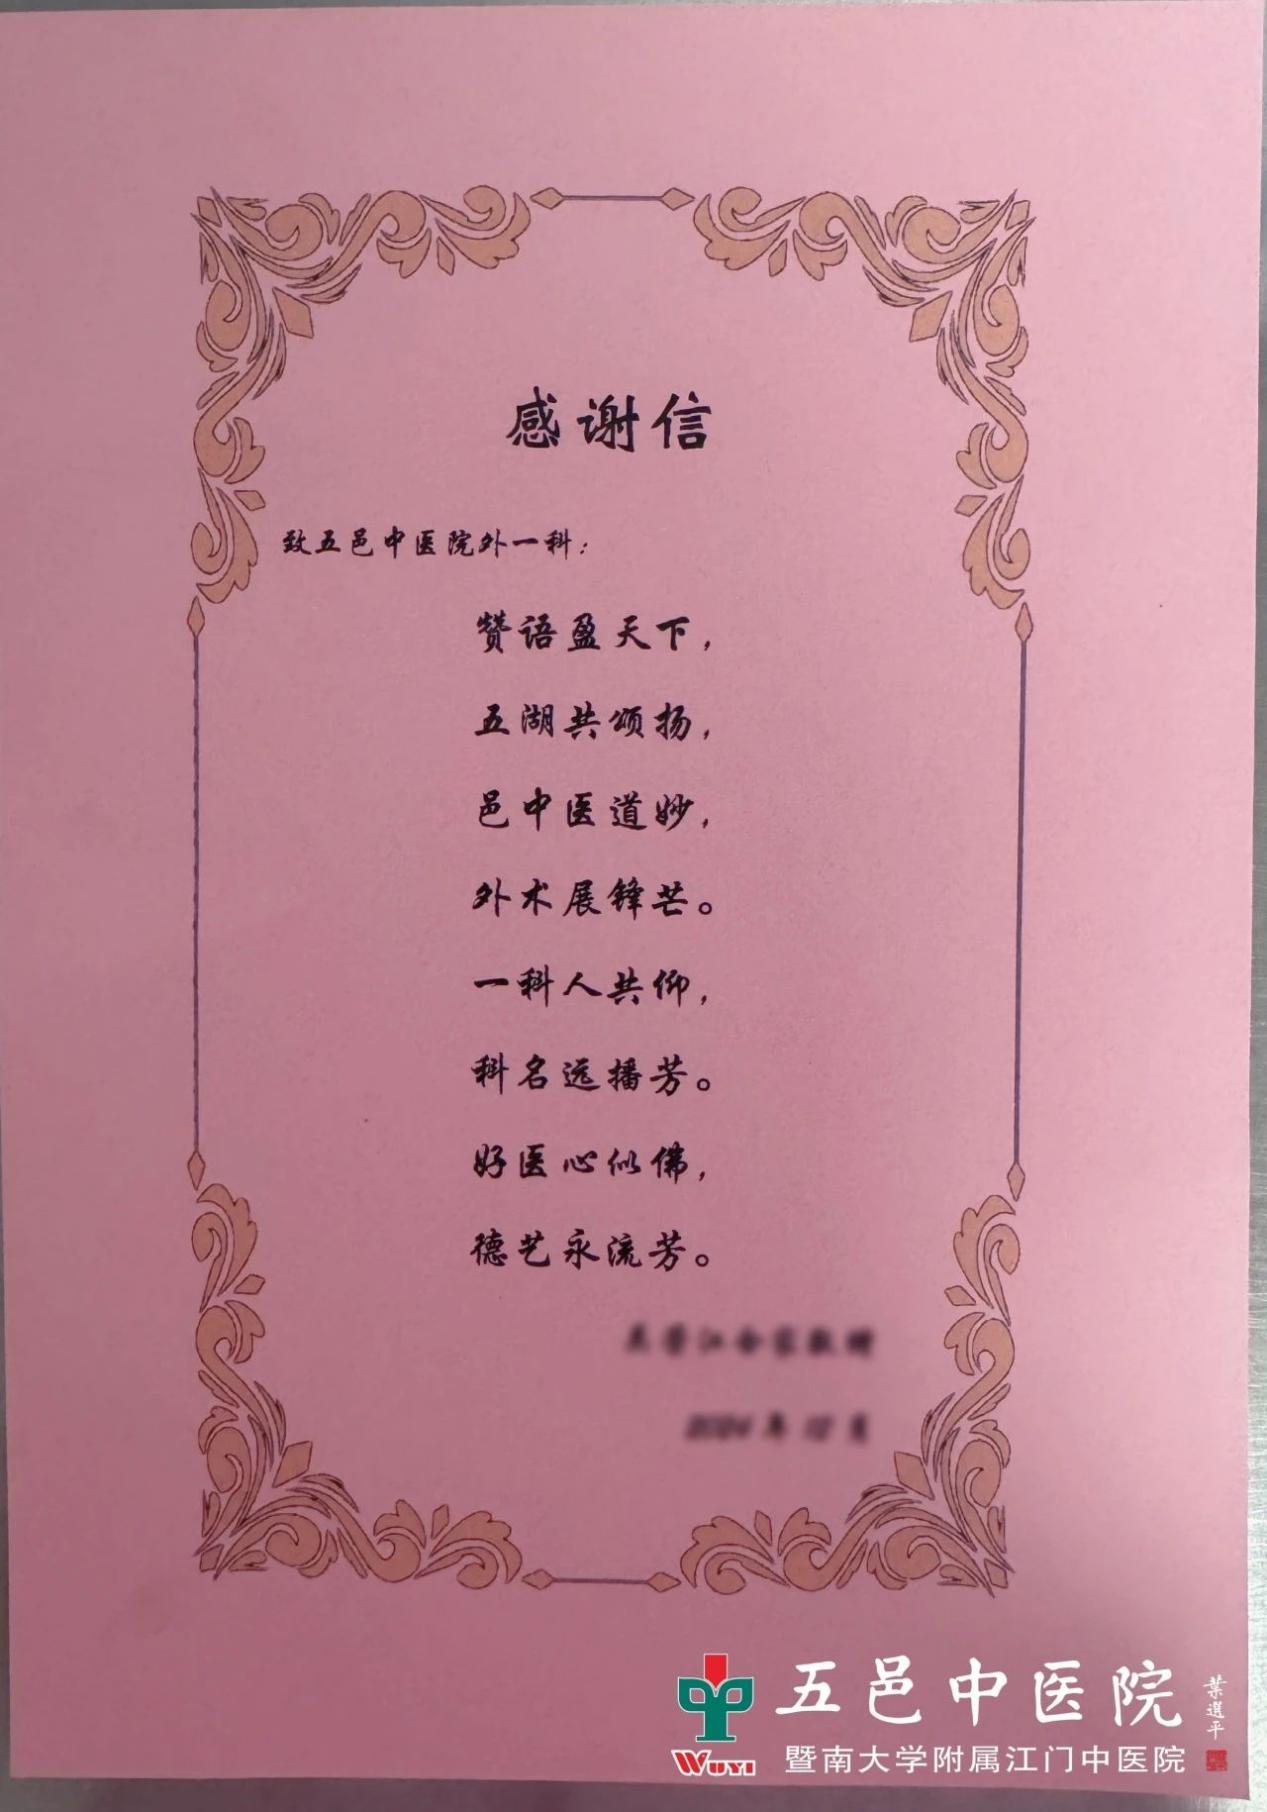 感谢信
致五邑中医院外一科：
赞语盈天下，
五湖共颂扬，
邑中医道妙，
外术展锋芒。
一科人共仰，
科名远播芳。
好医心似佛，
德艺永流芳。
2024年12月
五邑中医院
葉選平
WUYI
暨南大学附属江门中医院